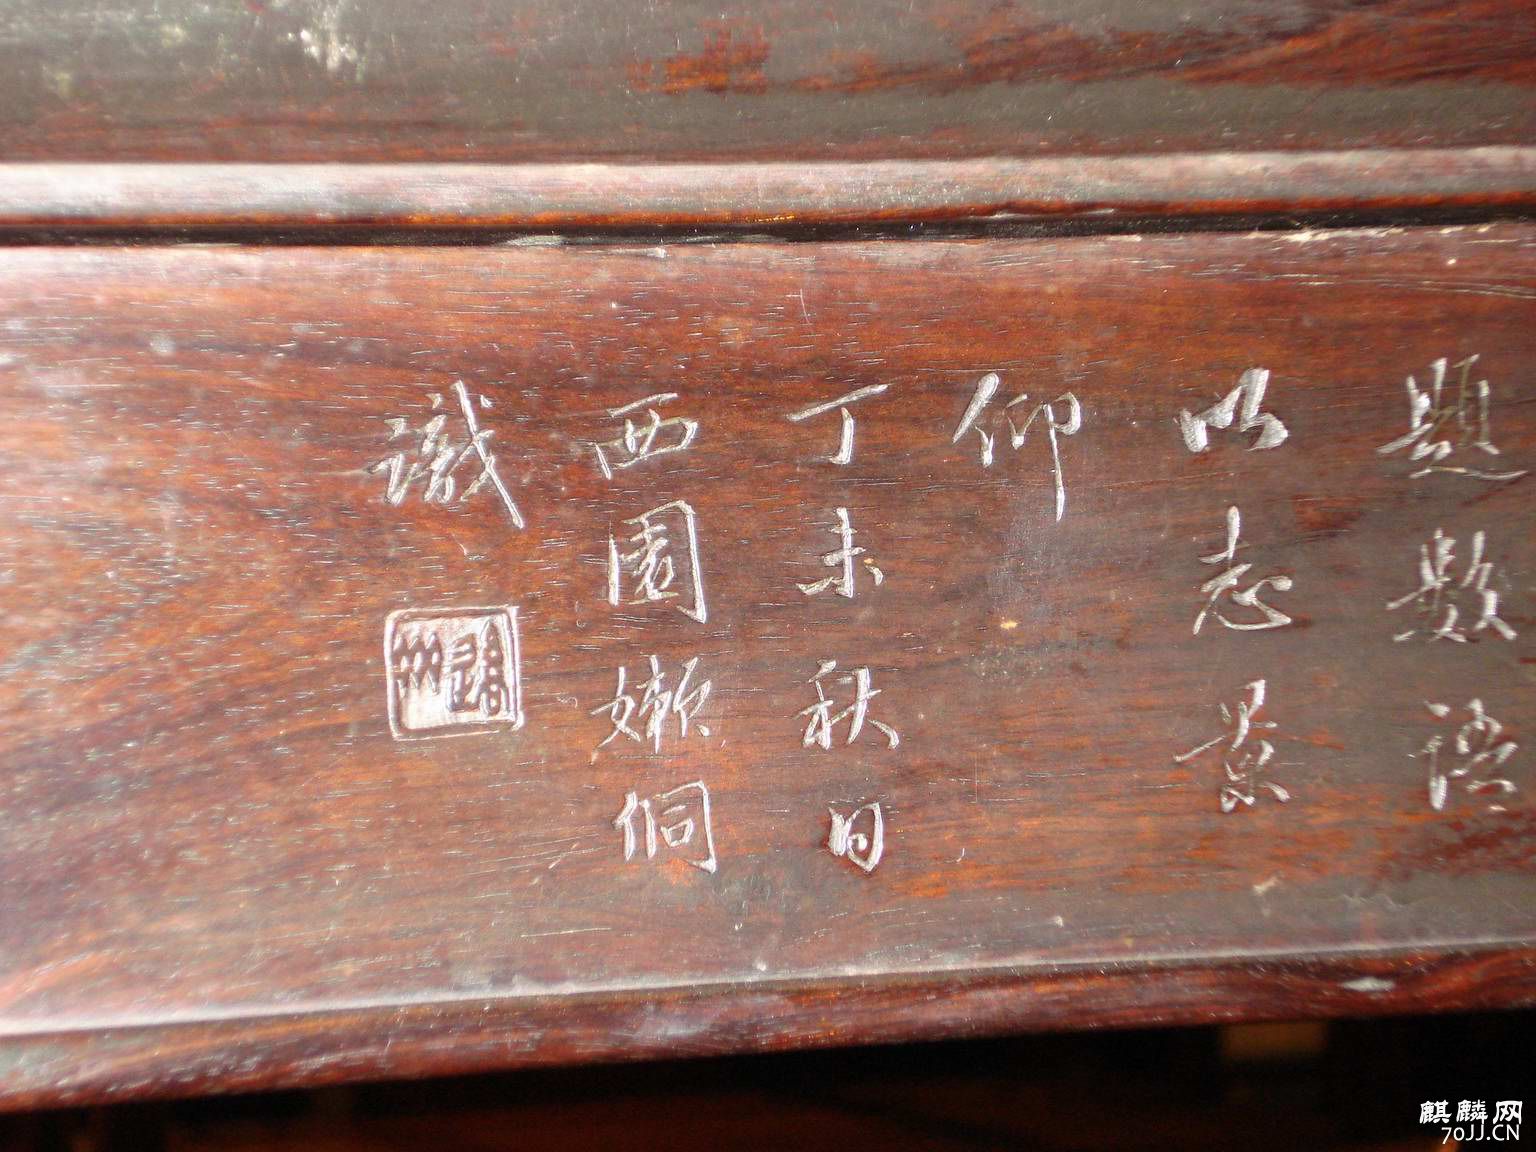 題數語
以志景
仰
丁未秋日
西園嬾侗
識
麒麟网
70JJ.CN